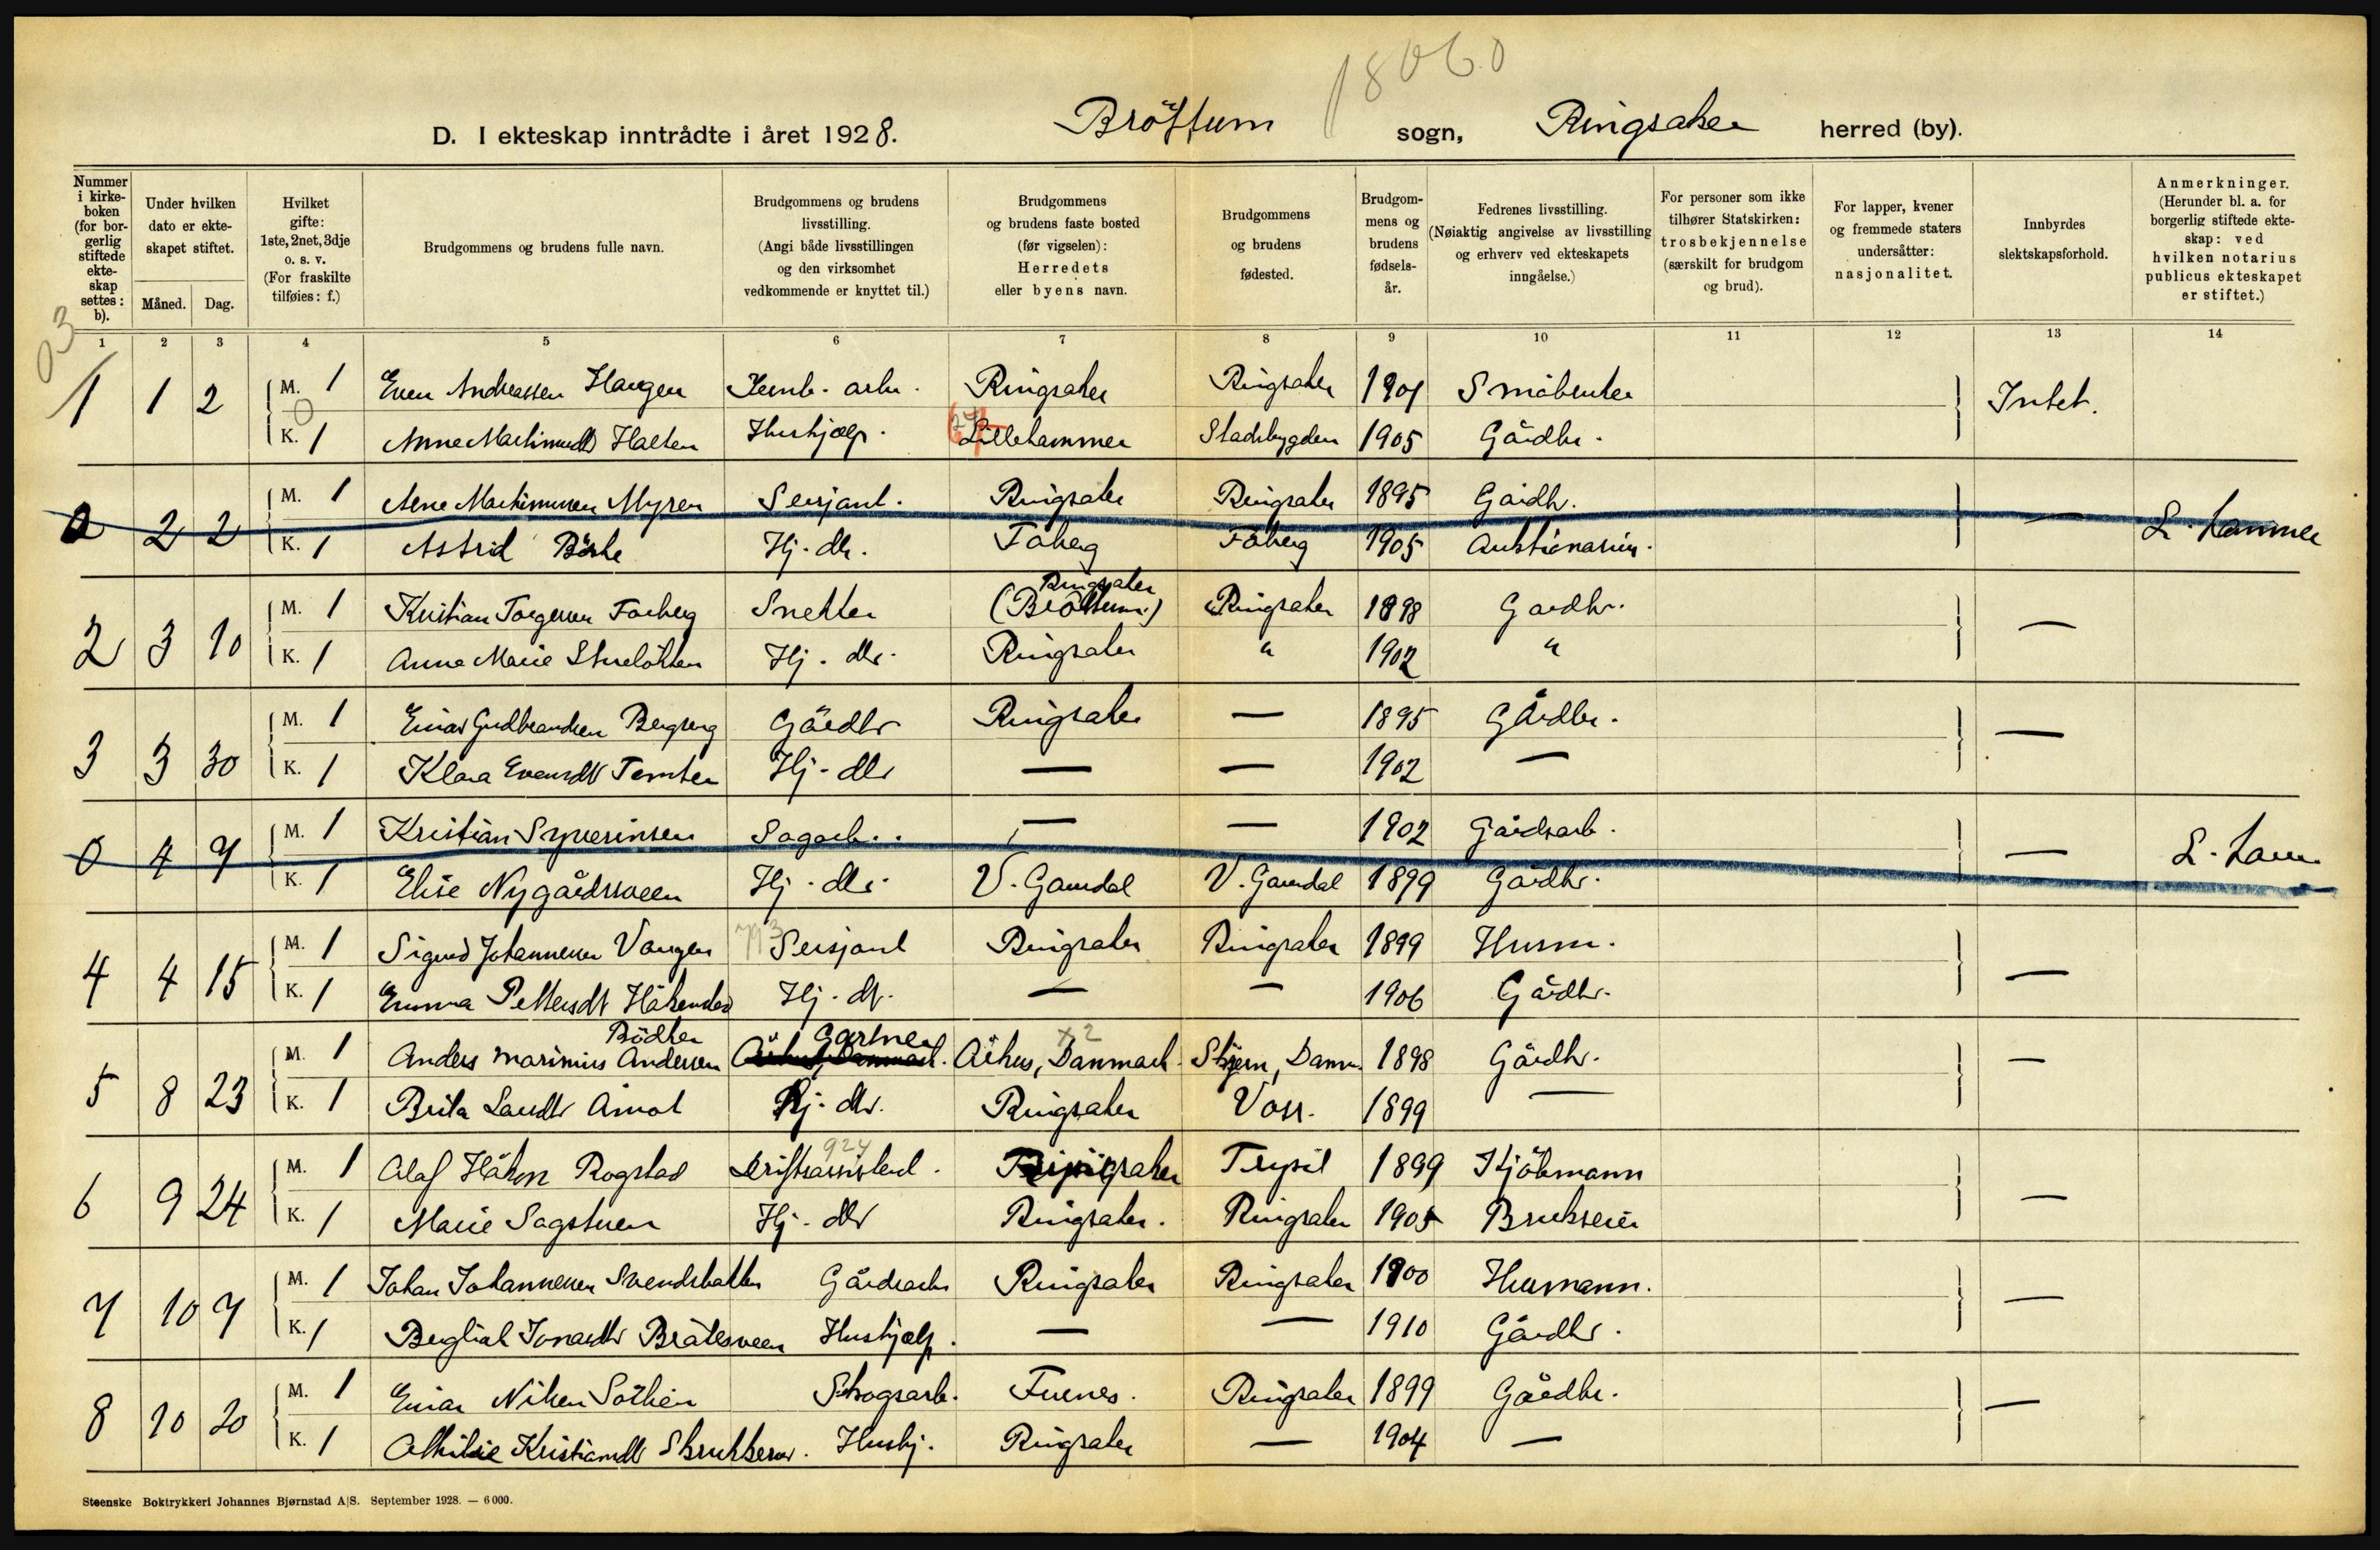 18060
D. I ekteskap inntrådte i året 1928. Bröttum sogn, Ringsaker herred (by).
Nummer i kirkeboken (for borgerlig stiftede ekteskap settes: b).
Under hvilken dato er ekteskapet stiftet.
Måned. Dag.
Hvilket gifte: 1ste, 2net, 3dje o. s. v. (For fraskilte tilføies: f.)
Brudgommens og brudens fulle navn.
Brudgommens og brudens livsstilling. (Angi både livsstillingen og den virksomhet vedkommende er knyttet til.)
Brudgommens og brudens faste bosted (før vigselen): Herredets eller byens navn.
Brudgommens og brudens fødested.
Brudgommens og brudens fødselsår.
Fedrenes livsstilling. (Nøiaktig angivelse av livsstilling og erhverv ved ekteskapets inngåelse.)
For personer som ikke tilhører Statskirken: trosbekjennelse (særskilt for brudgom og brud).
For lapper, kvener og fremmede staters undersåtter: nasjonalitet.
Innbyrdes slektskapsforhold.
Anmerkninger. (Herunder bl. a. for borgerlig stiftede ekteskap: ved hvilken notarius publicus ekteskapet er stiftet.)
03
1 2 3 4 5 6 7 8 9 10 11 12 13 14
1 1 2 M. 1 Even Andreassen Haugen Ringsaker Ringsaker 1901 Småbruker Intet.
K. 1 Anne Hushjælp. Lillehammer Stadsbygden 1905 Gårdbr.
0 2 2 M. 1 Arne Martinussen Myren Sersjant. Ringsaker Ringsaker 1895 Gårdbr. — L. hammer
K. 1 Astrid Hj. dtr. Fåberg Fåberg 1905 Auktionarius.
Ringsaker
2 3 10 M. 1 Kristian Torgersen Forberg Snekker (Bröttum) Ringsaker 1898 Gaardbr. —
K. 1 Anne Marie Hj. dtr. Ringsaker " 1902 "
3 3 30 M. 1 Einar Gudbrandsen Bergseng Gårdbr Ringsaker — 1895 Gårdbr. —
K. 1 Klara Evensdtr Hj. dtr — — 1902 —
0 4 7 M. 1 Kristian Syverinsen Sagarb. — — 1902 Gårdsarb. — L. ham.
K. 1 Elise Nygårdsveen Hj. dtr. V. Gausdal V. Gausdal 1899 Gårdbr.
4 4 15 M. 1 Sigurd Johannessen Vangen 793 Sersjant Ringsaker Ringsaker 1899 Husm. —
K. 1 Emma Pettersdtr Hj. dt. — — 1906 Gårdbr.
Bödker Gartner x2
5 8 23 M. 1 Anders Marinius Andersen Århus, Danmark. Århus, Danmark. Skjern, Danm. 1898 Gårdbr. —
K. 1 Brita Larsdtr Hj. dtr. Ringsaker Voss. 1899 —
924
6 9 24 M. 1 Olaf Håkon Rogstad Driftsassistent. Ringsaker Trysil 1899 Kjöbmann —
K. 1 Marie Sagstuen Hj. dtr Ringsaker. Ringsaker 1905 Brukseier
7 10 7 M. 1 Johan Johannessen Svendsbakken Gårdsarb Ringsaker Ringsaker 1900 Husmann. —
K. 1 Bråtesveen Hushjælp. — — 1910 Gårdbr.
8 10 20 M. 1 Einar Nilsen Skogsarb. Furnes. Ringsaker 1899 Gårdbr. —
K. 1 Kristiansdtr Hushj. Ringsaker — 1904 —
Steenske Boktrykkeri Johannes Bjørnstad A|S. September 1928. — 6000.